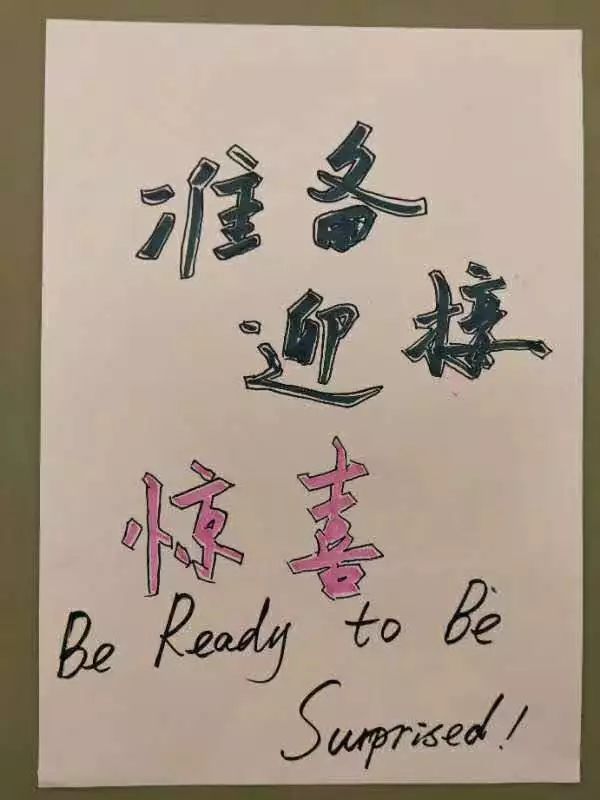 准备
迎接
惊喜
Be Ready to Be
Surprised!